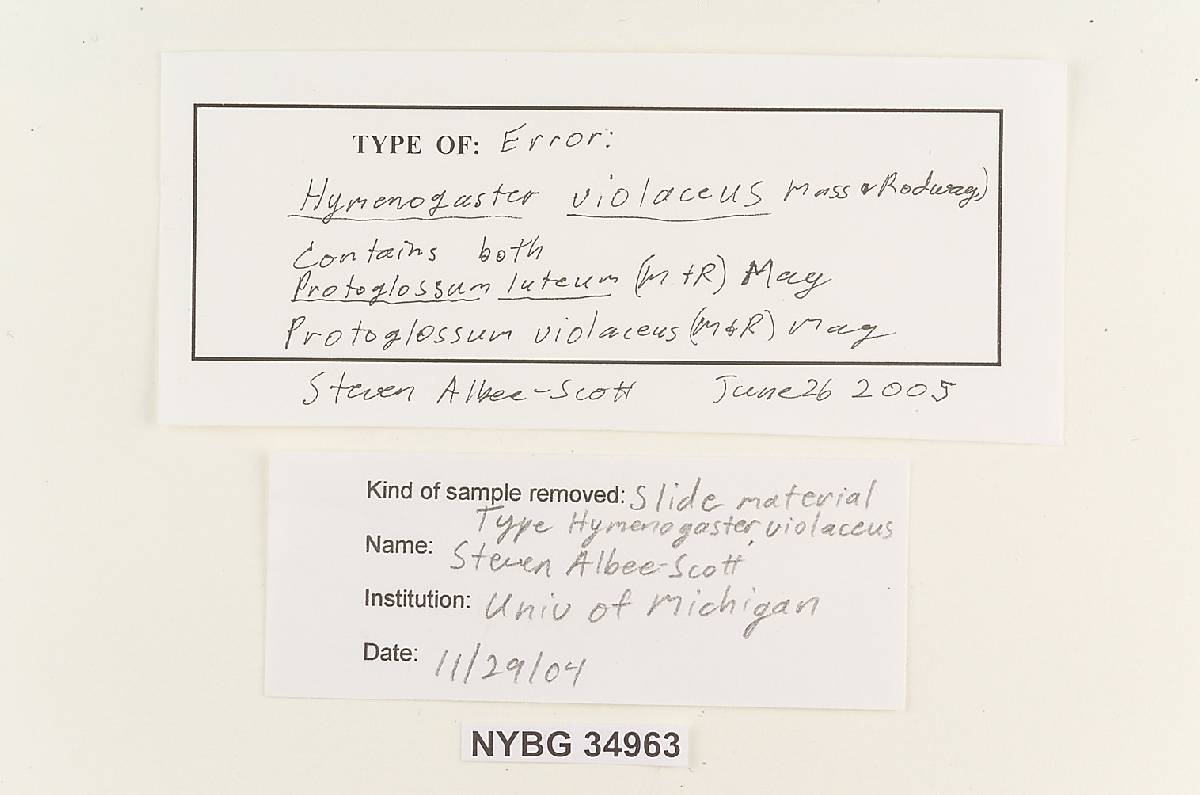 TYPE OF: Error:
Hymenogaster violaceus Mass & Rodway)
Contains both
Protoglossum luteum (M+R) May
Protoglossum violaceus (M&R) May
Steven Albee-Scott June 26 2005
Kind of sample removed: Slide material
Type Hymenogaster violaceus
Name: Steven Albee-Scott
Institution: Univ of Michigan
Date: 11/29/04
NYBG 34963